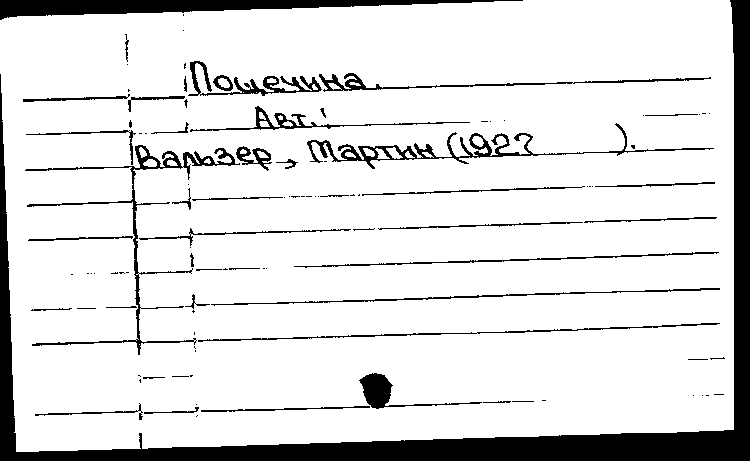 Пощечина.
Авт.:
Вальзер, Мартин (1927 ).